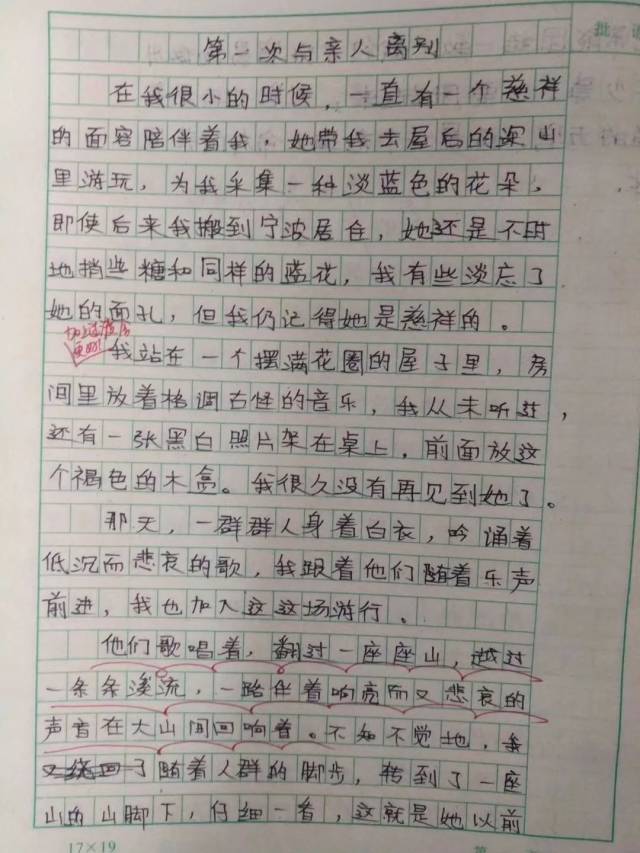 批语
第一次与亲人离别
在我很小的时候，一直有一个慈祥
的面容陪伴着我，她带我去屋后的深山
里游玩，为我采集一种淡蓝色的花朵，
即使后来我搬到宁波居住，她还是不时
地捎些糖和同样的蓝花，我有些淡忘了
她的面孔，但我仍记得她是慈祥的。
加上过渡句
更好！
我站在一个摆满花圈的屋子里，房
间里放着格调古怪的音乐，我从未听过，
还有一张黑白照片架在桌上，前面放这
个褐色的木盒。我很久没有再见到她了。
那天，一群群人身着白衣，吟诵着
低沉而悲哀的歌，我跟着他们随着乐声
前进，我也加入这这场游行。
他们歌唱着，翻过一座座山，越过
一条条溪流，一路伴着响亮而又悲哀的
声音在大山间回响着。不知不觉地，我
了随着人群的脚步，转到了一座
山的山脚下，仔细一看，这就是她以前
17×19
第